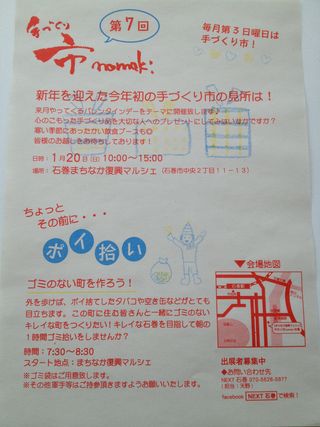 手づくり
市 nomaki
第7回
毎月第3日曜日は
手づくり市！
新年を迎えた今年初の手づくり市の見所は！
来月やってくるバレンタインデーをテーマに開催致します♪
心のこもった手づくり品を大切な人へのプレゼントにしてみてはいかがですか？
寒い季節にあったかい飲食ブースも◎
皆様のお越しをお待ちしております！
日時：1月20(日) 10:00〜15:00
場所：石巻まちなか復興マルシェ（石巻市中央2丁目11−13）
ちょっと
その前に・・・
ポイ拾い
ゴミのない町を作ろう！
外を歩けば、ポイ捨てしたタバコや空き缶などがとても
目立ちます。この町に住む皆さんと一緒にゴミのない
キレイな町をつくりたい！キレイな石巻を目指して朝の
1時間ゴミ拾いをしませんか？
時間：7:30〜8:30
スタート地点：まちなか復興マルシェ
※ゴミ袋はご用意致します。
※その他軍手等はご持参頂きますようお願いいたします。
▼会場地図
出展者募集中
◆お問い合わせ先
NEXT 石巻 070-5626-5877
（担当：天野）
facebook NEXT 石巻 で検索！